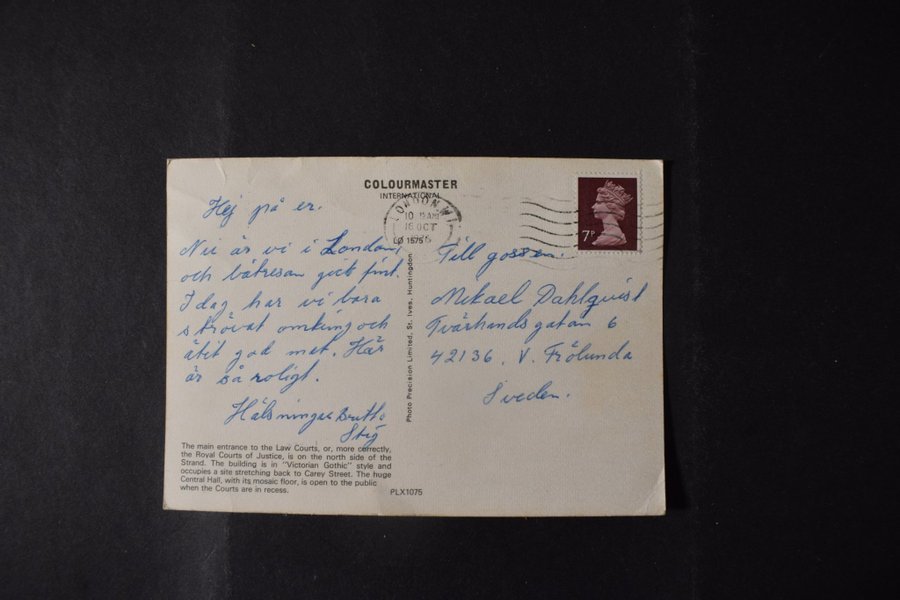 COLOURMASTER
INTERNATIONAL
LONDON W1
10
16 OCT
LO 1575
7P
Hej på er.
Nu är vi i London,
och båtresan gick fint.
I dag har vi bara
strövat omkring och
ätit god mat. Här
är så roligt.
Hälsningar Britt o
Stig
Till gossen.
Mikael Dahlqvist
Tvärhandsgatan 6
42136. V. Frölunda
Sveden.
Photo Precision Limited, St. Ives, Huntingdon
The main entrance to the Law Courts, or, more correctly,
the Royal Courts of Justice, is on the north side of the
Strand. The building is in "Victorian Gothic" style and
occupies a site stretching back to Carey Street. The huge
Central Hall, with its mosaic floor, is open to the public
when the Courts are in recess.
PLX1075